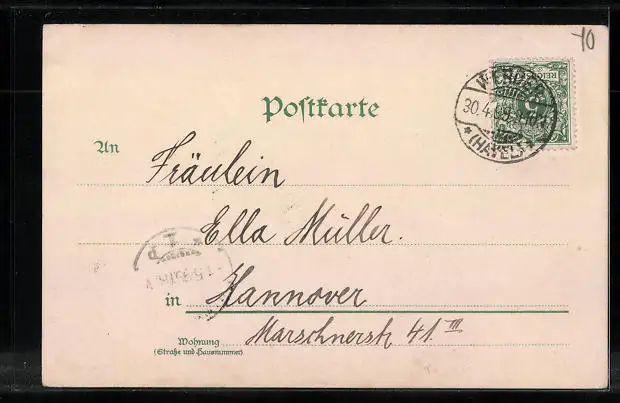 10
Postkarte
WERDER
(HAVEL)
REICHSPOST
An Fräulein
Ella Müller.
in Hannover
Wohnung Marschnerstr. 41. III
(Straße und Hausnummer)